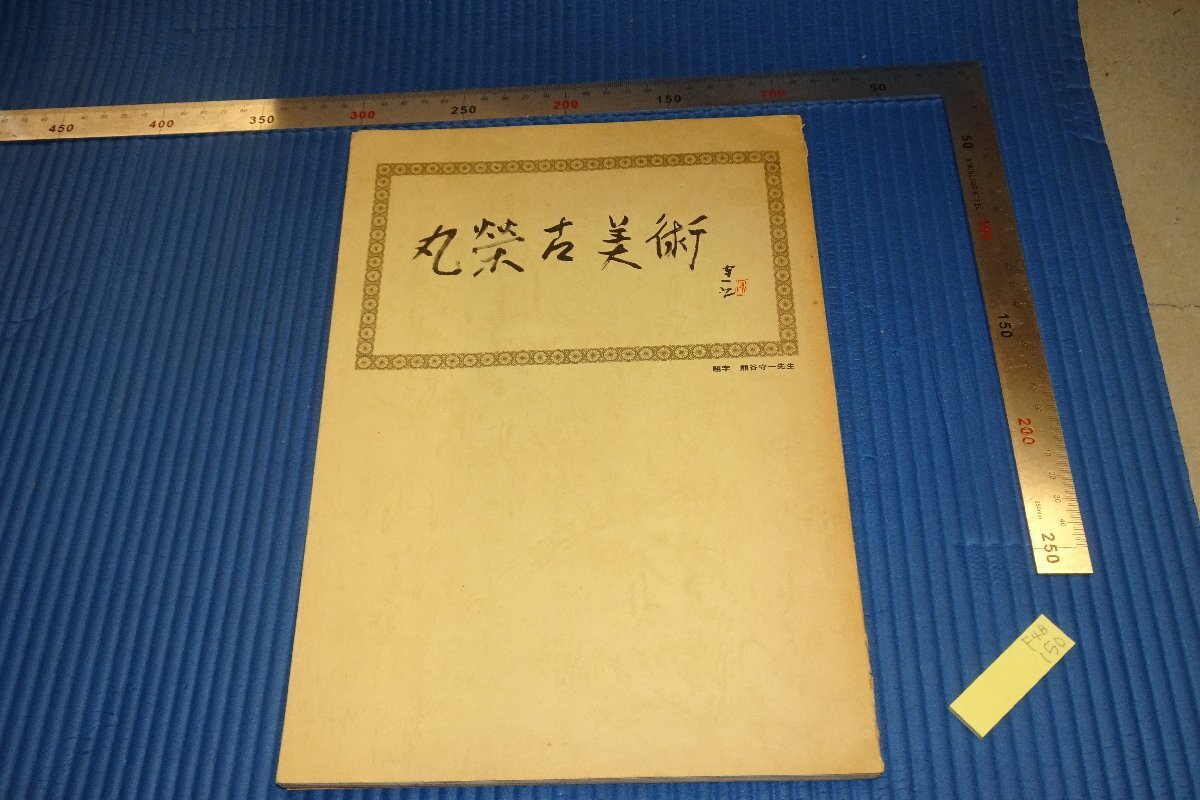 450 400 350 300 250 200 150 100 50
丸榮古美術
題字 熊谷守一先生
50
STAINLESS STEEL
100
150
200
250mm
250